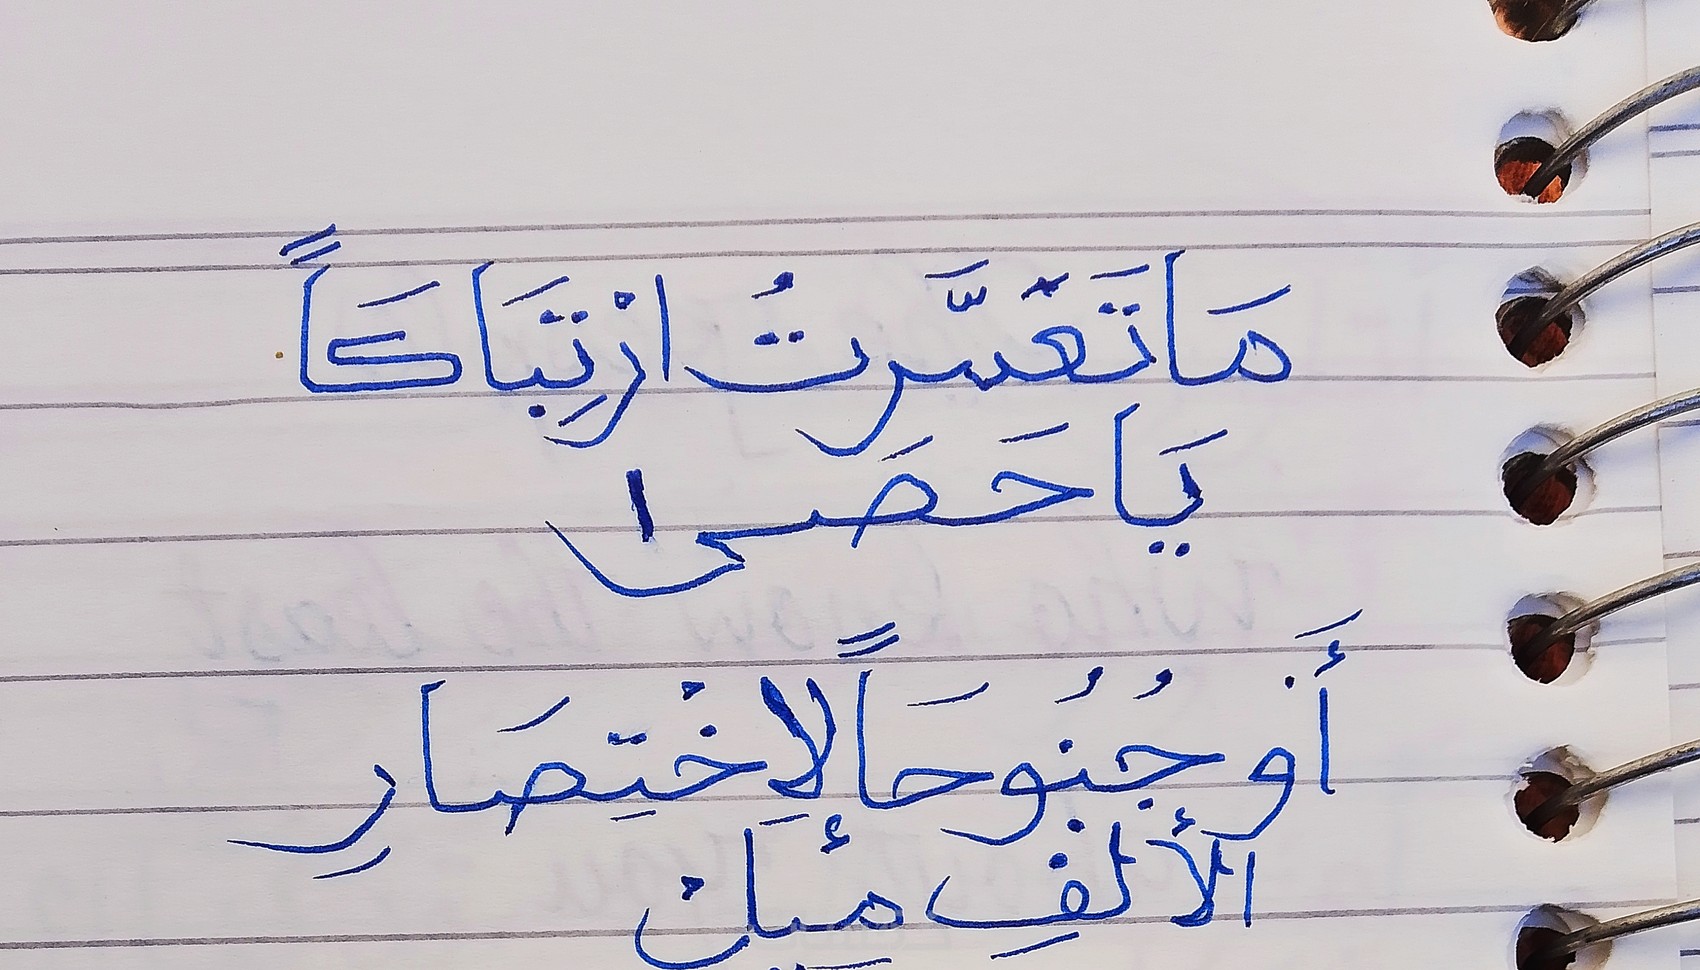 مَا تَعَسَّرتُ ارْتِبَاكَاً
يَا حَصَى
أَو جُنُوحَاً لِاخْتِصَارِ
الأَلفِ مِيلْ